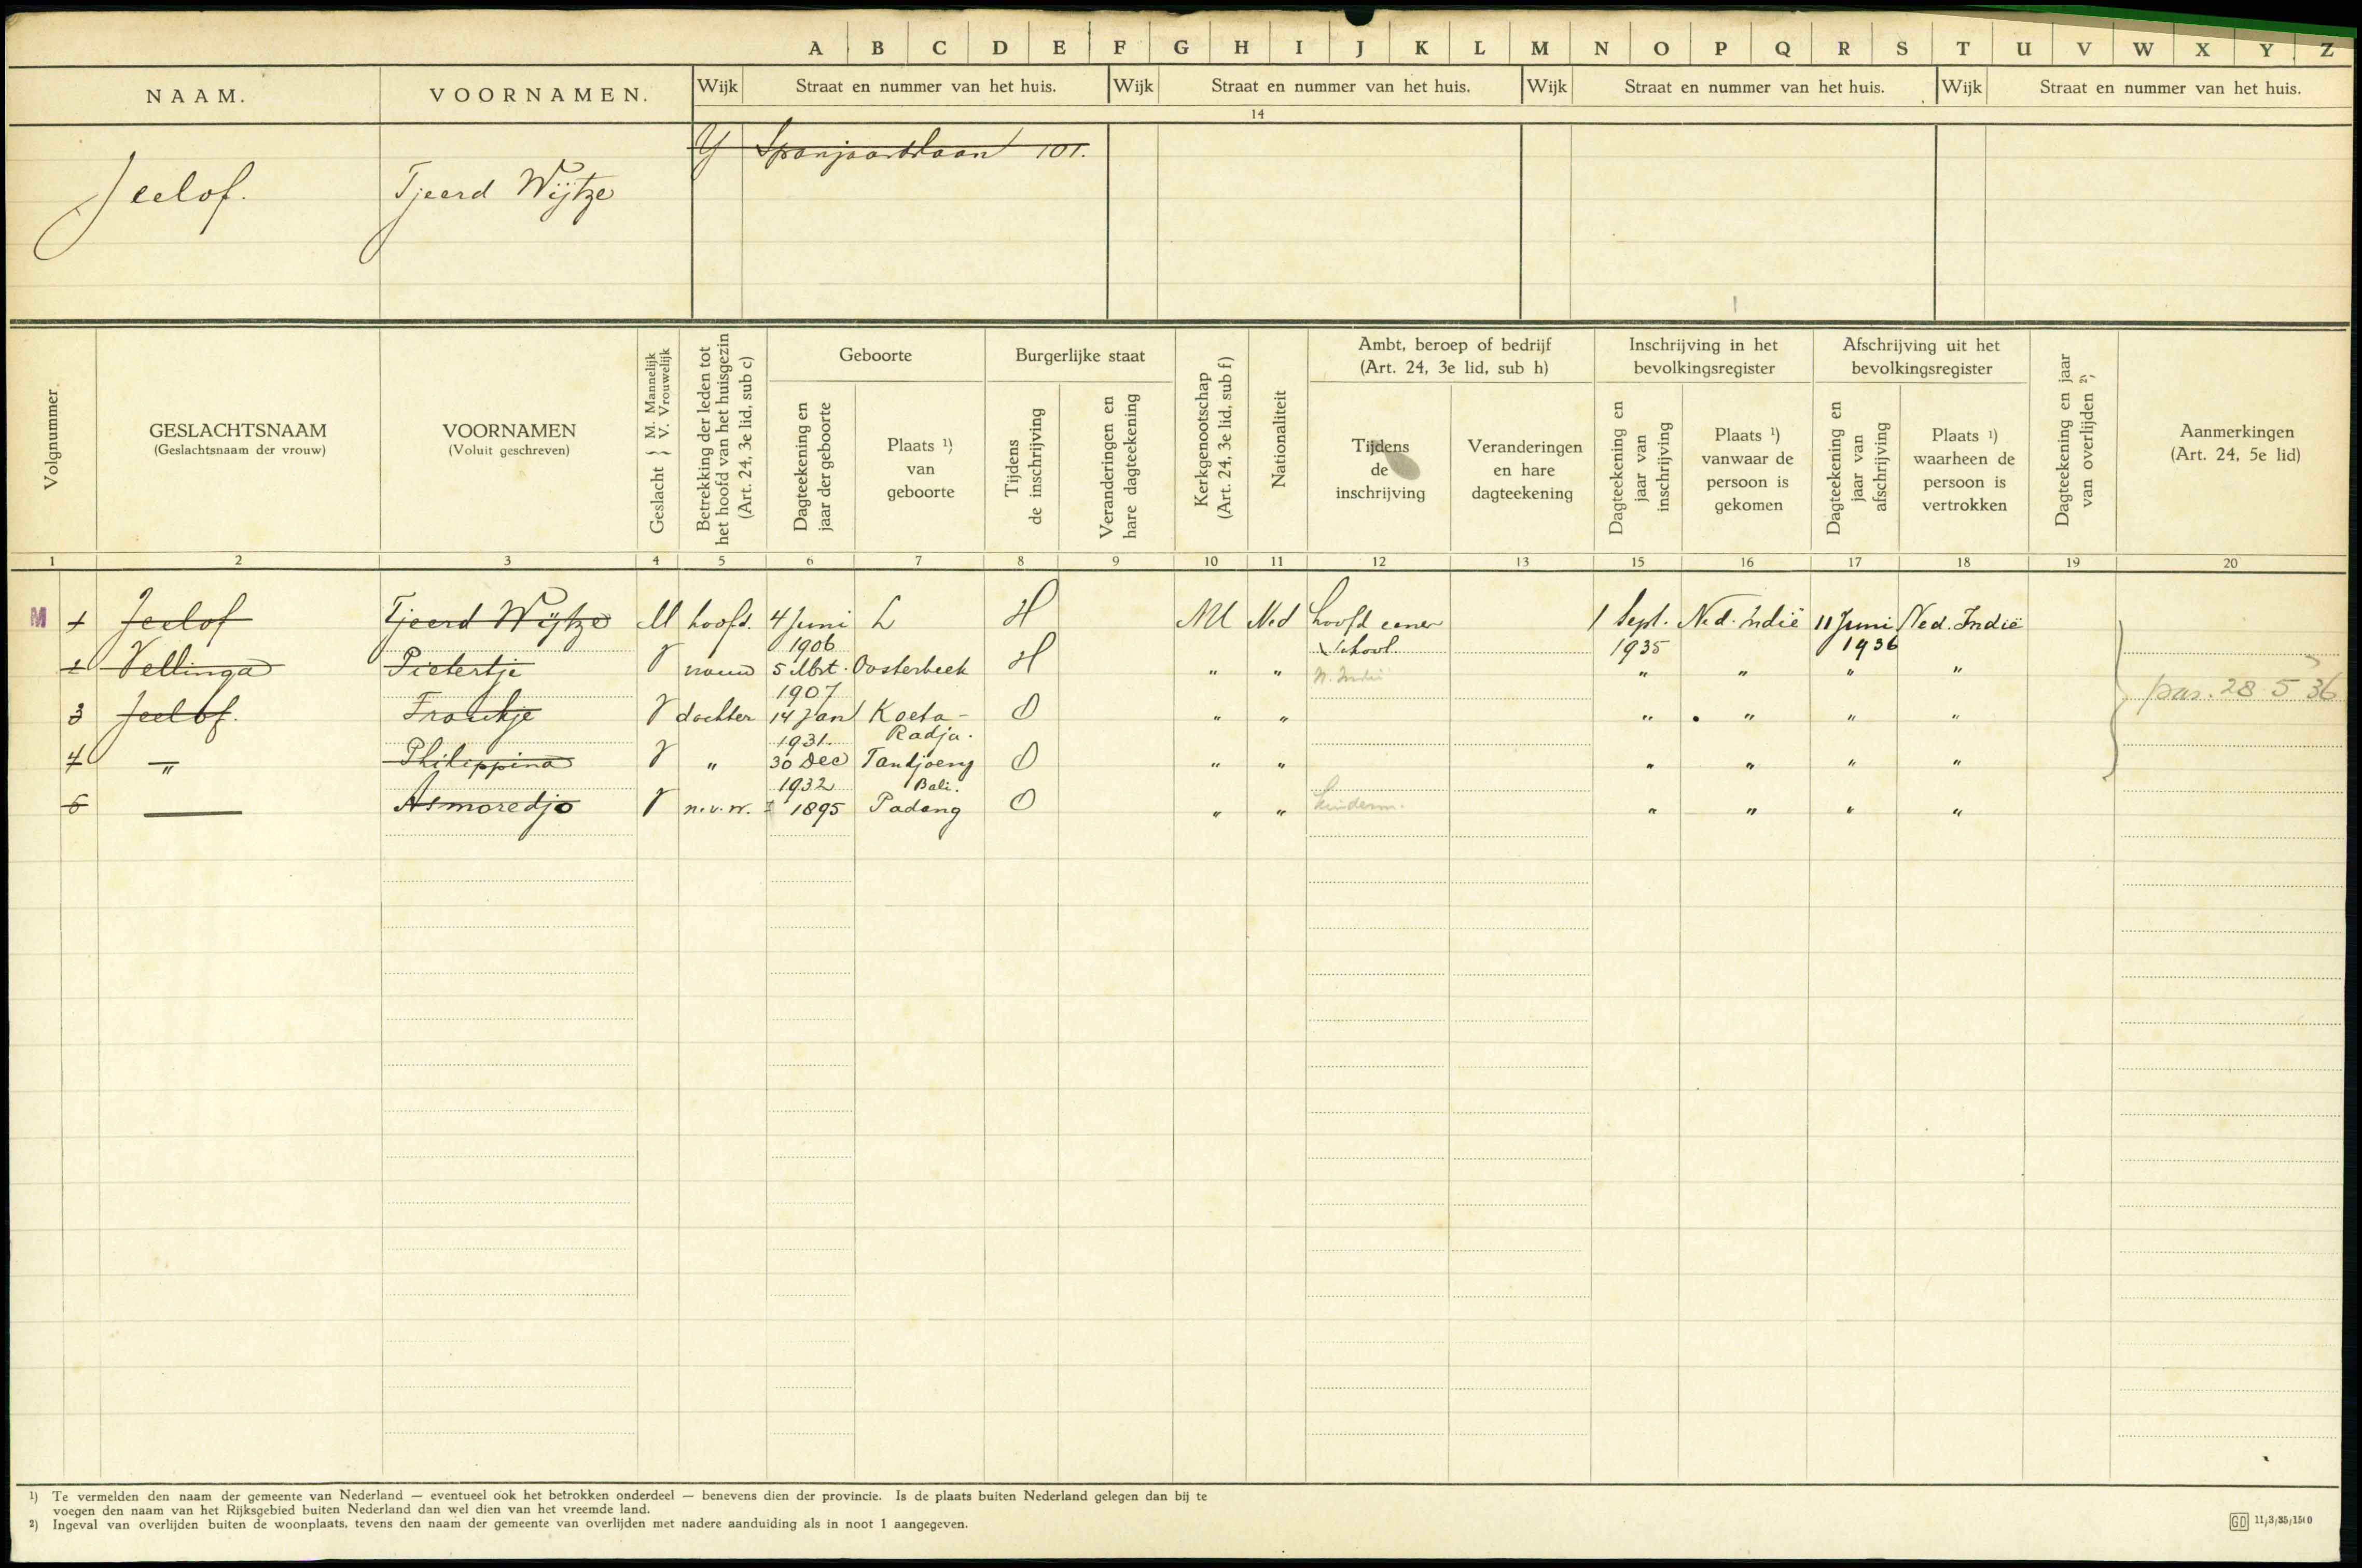 A B C D E F G H I J K L M N O P Q R S T U V W X Y Z
NAAM. VOORNAMEN. Wijk Straat en nummer van het huis. Wijk Straat en nummer van het huis. Wijk Straat en nummer van het huis. Wijk Straat en nummer van het huis.
14
Y Spanjaardslaan 101.
Jeelof. Tjeerd Wijtze
Volgnummer
GESLACHTSNAAM
(Geslachtsnaam der vrouw)
VOORNAMEN
(Voluit geschreven)
Geslacht { M. Mannelijk
V. Vrouwelijk
Betrekking der leden tot
het hoofd van het huisgezin
(Art. 24, 3e lid, sub c)
Geboorte
Dagteekening en
jaar der geboorte
Plaats 1)
van
geboorte
Burgerlijke staat
Tijdens
de inschrijving
Veranderingen en
hare dagteekening
Kerkgenootschap
(Art. 24, 3e lid, sub f)
Nationaliteit
Ambt, beroep of bedrijf
(Art. 24, 3e lid, sub h)
Tijdens
de
inschrijving
Veranderingen
en hare
dagteekening
Inschrijving in het
bevolkingsregister
Dagteekening en
jaar van
inschrijving
Plaats 1)
vanwaar de
persoon is
gekomen
Afschrijving uit het
bevolkingsregister
Dagteekening en
jaar van
afschrijving
Plaats 1)
waarheen de
persoon is
vertrokken
Dagteekening en jaar
van overlijden 2)
Aanmerkingen
(Art. 24, 5e lid)
1 2 3 4 5 6 7 8 9 10 11 12 13 15 16 17 18 19 20
M 1 Jeelof Tjeerd Wijtze M hoofd. 4 Juni L H NH Ned hoofd eener 1 Sept. Ned. Indië 11 Juni Ned. Indië
1906 School 1935 1936
2 Vellinga Pietertje V vrouw 5 Oosterbeek H " " N. Indië " " " "
1907 par. 28 5 36
3 Jeelof. Froukje V dochter 14 Jan Koeta- O " " " " " "
1931 Radja.
4 " Philippina V " 30 Dec Tandjoeng O " " " " " "
1932 Bali.
5 — Asmoredjo V n.v.w. ± 1895 Padang O " " kinderm. " " " "
1) Te vermelden den naam der gemeente van Nederland — eventueel ook het betrokken onderdeel — benevens dien der provincie. Is de plaats buiten Nederland gelegen dan bij te
voegen den naam van het Rijksgebied buiten Nederland dan wel dien van het vreemde land.
2) Ingeval van overlijden buiten de woonplaats, tevens den naam der gemeente van overlijden met nadere aanduiding als in noot 1 aangegeven.
GD 11/3/35/1500